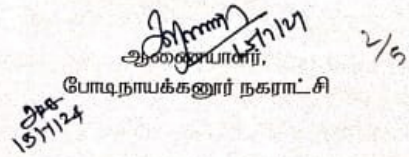 15/7/21
2/5
ஆணையாளர்,
போடிநாயக்கனூர் நகராட்சி